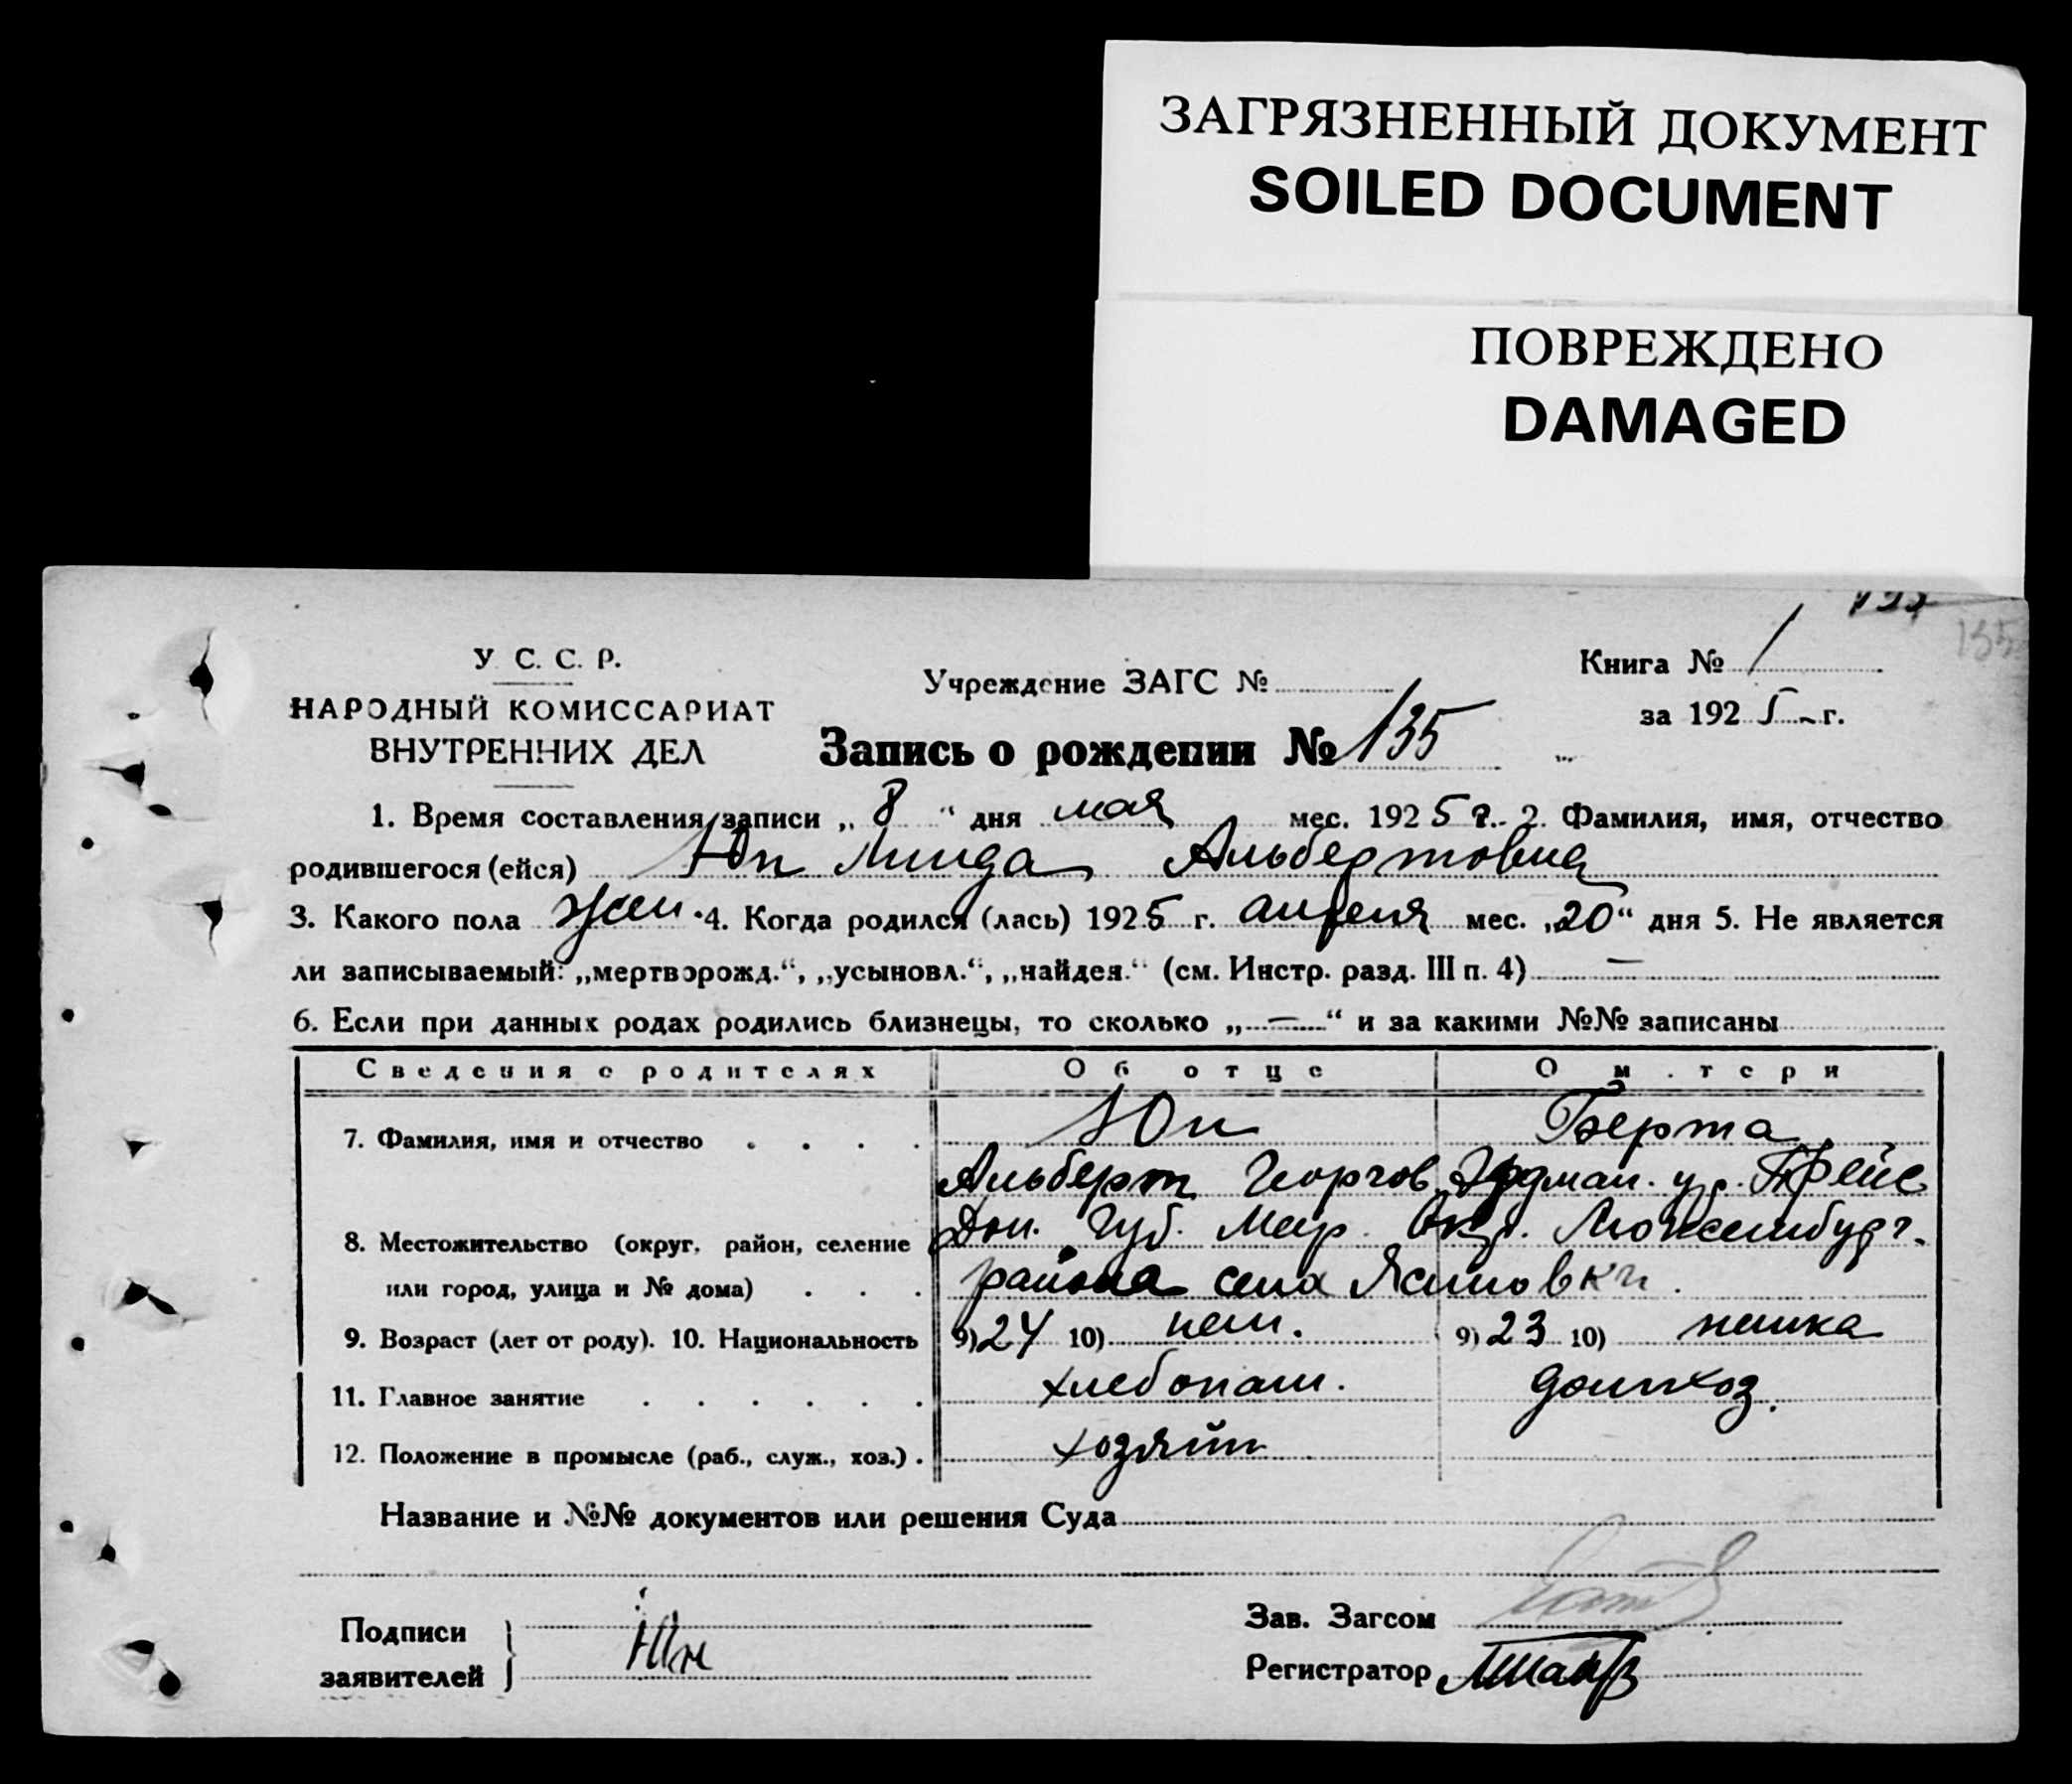 ЗАГРЯЗНЕННЫЙ ДОКУМЕНТ
SOILED DOCUMENT
ПОВРЕЖДЕНО
DAMAGED
135
У. С. С. Р.
НАРОДНЫЙ КОМИССАРИАТ
ВНУТРЕННИХ ДЕЛ
Учреждение ЗАГС №
Книга № 1
за 1925 г.
Запись о рождении № 135
1. Время составления записи „ 8 “ дня мая мес. 1925 г. 2. Фамилия, имя, отчество
родившегося (ейся) Юн Линда Альбертовна
3. Какого пола жен. 4. Когда родился (лась) 1925 г. апреля мес. „20“ дня 5. Не является
ли записываемый: „мертворожд.“, „усыновл.“, „найден.“ (см. Инстр. разд. III п. 4) —
6. Если при данных родах родились близнецы, то сколько „—“ и за какими №№ записаны
Сведения о родителях Об отце О матери
7. Фамилия, имя и отчество . . . . Юн Берта
Альберт Георгов. Эрдман. ур. Прейс
8. Местожительство (округ, район, селение Дон. Губ. Мар. Окр. Люксембург.
или город, улица и № дома) . . . района села Ясиновки
9. Возраст (лет от роду). 10. Национальность 9) 24 10) нем. 9) 23 10) немка
11. Главное занятие . . . . . . хлебопаш. домхоз.
12. Положение в промысле (раб., служ., хоз.) . хозяин
Название и №№ документов или решения Суда
Подписи
заявителей
Юн
Зав. Загсом
Регистратор